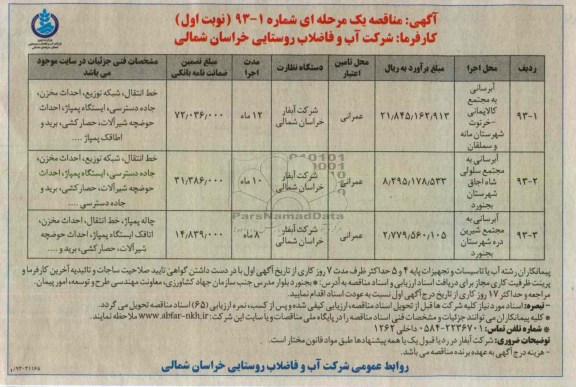 آگهی: مناقصه یک مرحله ای شماره ۱-۹۳ (نوبت اول)
کارفرما: شرکت آب و فاضلاب روستایی خراسان شمالی
ردیف
محل اجرا
مبلغ برآورد به ریال
محل تامین اعتبار
دستگاه نظارت
مدت اجرا
مبلغ تضمین ضمانت نامه بانکی
مشخصات فنی جزئیات در سایت موجود می باشد
۹۳-۱
آبرسانی
به مجتمع
کالایمانی
-خرتوت
شهرستان مانه
و سملقان
۲۱/۸۴۵/۱۶۲/۹۱۳
عمرانی
شرکت آبفار
خراسان شمالی
۱۲ ماه
۷۲/۰۳۶/۰۰۰
خط انتقال، شبکه توزیع، احداث مخزن،
جاده دسترسی، ایستگاه پمپاژ، احداث
حوضچه شیرآلات، حصارکشی، برید و
اطاقک پمپاژ ....
۹۳-۲
آبرسانی به
مجتمع سلولی
شاه اجاق
شهرستان
بجنورد
۸/۲۹۵/۱۷۸/۵۳۳
عمرانی
شرکت آبفار
خراسان شمالی
۱۰ ماه
۳۱/۳۸۶/۰۰۰
خط انتقال، شبکه توزیع، احداث مخزن،
جاده دسترسی، ایستگاه پمپاژ، احداث
حوضچه شیرآلات، حصار کشی، برید و
جاده دسترسی ....
۹۳-۳
آبرسانی به
مجتمع شیرین
دره شهرستان
بجنورد
۲/۷۷۹/۵۶۰/۱۰۵
عمرانی
شرکت آبفار
خراسان شمالی
۸ ماه
۱۴/۸۳۹/۰۰۰
چاله پمپاژ، خط انتقال، احداث مخزن،
اتاقک ایستگاه پمپاژ، احداث حوضچه
شیرآلات، حصار کشی، برید و ....
پیمانکاران رشته آب یا تاسیسات و تجهیزات پایه ۴ و ۵ حداکثر ظرف مدت ۷ روز کاری از تاریخ آگهی اول با در دست داشتن گواهی تایید صلاحیت ساجات و تائیدیه آخرین کارفرما و
پرینت ظرفیت کاری مجاز برای دریافت اسناد ارزیابی و اسناد مناقصه به آدرس: * بجنورد بلوار مدرس جنب سازمان جهاد کشاورزی، معاونت مهندسی طرح و توسعه، امور پیمان.
مراجعه و حداکثر ۱۷ روز کاری از تاریخ درج آگهی اول نسبت به عودت اسناد اقدام نمایید.
- تبصره: اسناد مورد نیاز کلیه شرکت ها قبل از تحویل اسناد مناقصه، ارزیابی کیفی شده و پس از کسب، نمره ارزیابی (۶۵) اسناد مناقصه تحویل می گردد.
* کلیه پیمانکاران می توانند جزئیات و مشخصات فنی اسناد مناقصه را در پایگاه ملی مناقصات و یا سایت این شرکت: www.abfar-nkh.ir ملاحظه نمایند.
* شماره تلفن تماس: ۲۲۳۶۷۰۱-۰۵۸۴ داخلی ۱۲۶۲
توضیحات ضروری: شرکت آبفار در رد یا قبول یک یا همه پیشنهادها طبق مواد قانون مختار است.
- هزینه درج آگهی به عهده برنده مناقصه می باشد.
روابط عمومی شرکت آب و فاضلاب روستایی خراسان شمالی
ParsNamadData